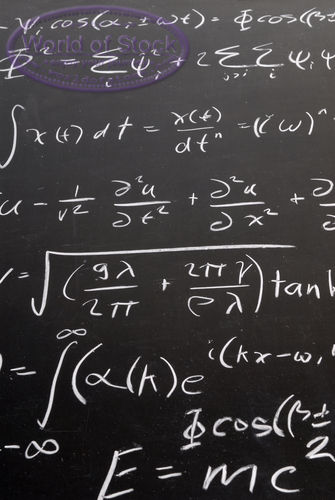 - Ψᵢ cos(α, ± ωt) = Φ cos((β±
World of Stock
Φ² = Σᵢ Ψᵢ + 2 Σ_{j>i} Σᵢ Ψᵢ Ψ
∫ x(t) dt = x(t)/dtⁿ = (iω)ⁿ
u - 1/v² ∂²u/∂t² + ∂²u/∂x² + ∂
= √((gλ/2π + 2πγ/ρλ) tanh
) = ∫_{-∞}^{∞} (α(k)e^{i(kx-ω,
Φ cos((β±
E = mc²